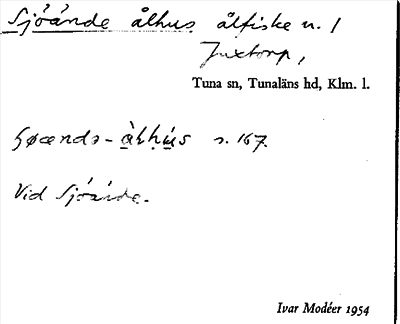 Sjóánde ålhus ålfiske u. 1
Juxtorp,
Tuna sn, Tunaläns hd, Klm. l.
s. 167.
Vid Sjóánde.
Ivar Modéer 1954